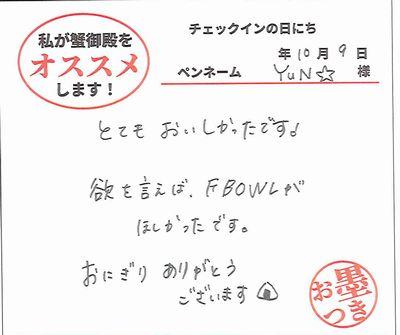 私が蟹御殿を
オススメ
します！
チェックインの日にち
年10月9日
ペンネーム YUN☆ 様
とても おいしかったです!
欲を言えば、FBOWLが
ほしかったです。
おにぎり ありがとう
ございます
お墨つき